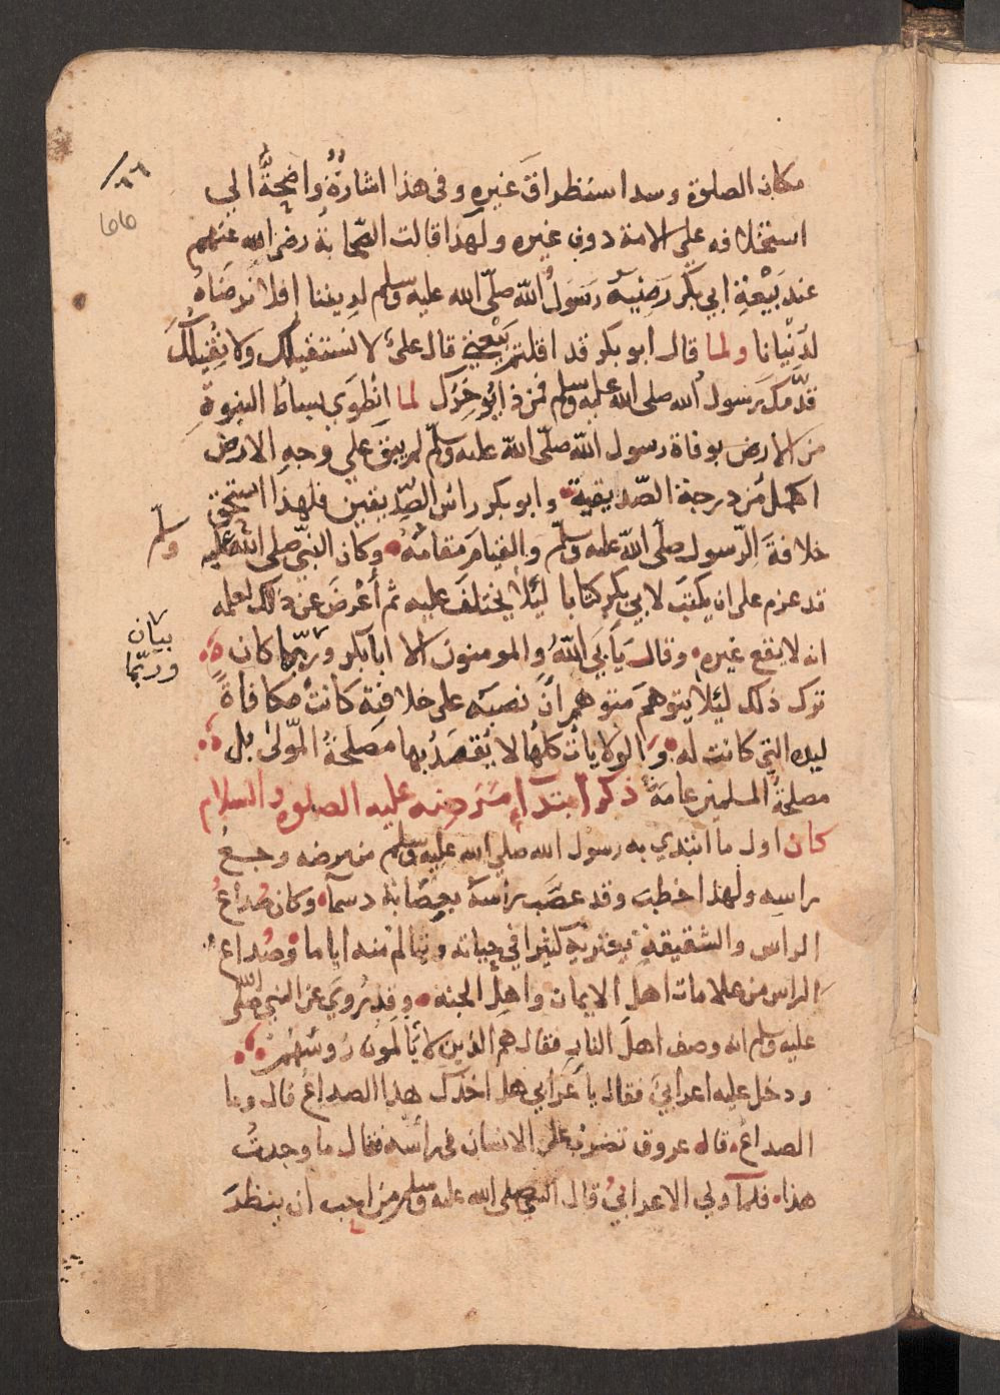 ٨٦
مكان الصلوة وسد استطراق غيره وفي هذا اشارةٌ واضحةٌ الي
استخلافه علي الامة دون غيره ولهذا قالت الصّحابة رضي الله عنهم
عند بَيْعَةِ ابي بكر رَضِيَهُ رَسَولُ اللّه صلّي الله عليه وسلم لديننا افلا نرضَاهُ
لدُنْيانا ولما قال ابو بكر قد اقلتكم بَيْعتي قال عليٌ لا نستقيلك ولا نُقِيلكَ
قدَّمكَ رَسول الله صلى الله عليه وسلم فمن ذا يُؤخِّرُك لما انْطَوَي بساط النبوةِ
من الارض بوفاة رسول اللّه صلّي اللّه عليه وسلّم لم يبقَ علي وجهِ الارض
اكمل من درجة الصّديقية وابو بكر راس الصّديقين فلهذا استحق
خلافةَ الرّسول صلّي اللّه عليه وسلّم والقيام مقامهُ وكان النبيّ صلي اللّه عليه
وسلّم
قد عزم على ان يكتبَ لابي بكر كتابا ليئلا يختلفَ عليه ثم أعْرضَ عن ذلك لعلمه
انه لا يقع غيره وقال يَأبَي اللّهُ والمومنون الا ابا بكر وربّما كان
بيان
وربّما
ترك ذلك ليئلا يتوهمَ متوهم انَّ نصبَه على خلافته كانتْ مكافاةً
ليده التي كانت له وَالولاياتُ كلها لا يُقصَدُ بها مصلحةُ المولّي بل
مصلحةُ المسلمين عامةً ذكر ابتداء مَرضه عليه الصلوه والسلام
كان اول ما ابتدي به رسول الله صلي الله عليه وسلم من مرضه وجعُ
راسِه ولهذا خطبَ وقد عصَّب رأسَهُ بعصَابة دسمآ وكان صُداعُ
الراس والشقيقةِ يعتريه كثيرا في حياته ويتالم منه اياما وصُداع
الراس من علامات اهل الايمان واهل الجنه وقد رُويَ عن النبي صلّي اللّه
عليه وسلم انه وصف اهلَ النار فقال هم الذين لا يَألَمُون رُوسُهُم
ودخل عليه اعرابيٌ فقال يا اعرابي هل اخذك هذا الصداعُ قال وما
الصداعُ قال عروق تضربُ على الانسان في رأسه فقال ما وجدتُ
هذا فلمّا ولي الاعرابيُ قال النبي صلى الله عليه وسلم من احب ان ينظرَ